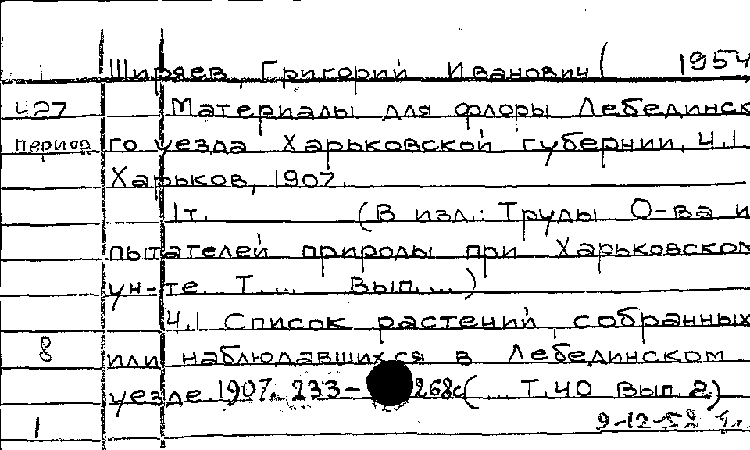 Ширяев, Григорий Иванович ( 1954
427 Материалы для флоры Лебединск
период го уезда Харьковской губернии. Ч.1
Харьков, 1907.
1т. (В изд.: Труды О-ва и
пытателей природы при Харьковском
ун-те. Т. ... Вып. ...)
Ч.1 Список растений, собранных
8 или наблюдавшихся в Лебединском
уезде. 1907. 233- 268с ( ... Т.40 Вып. 2)
1 9-12-52